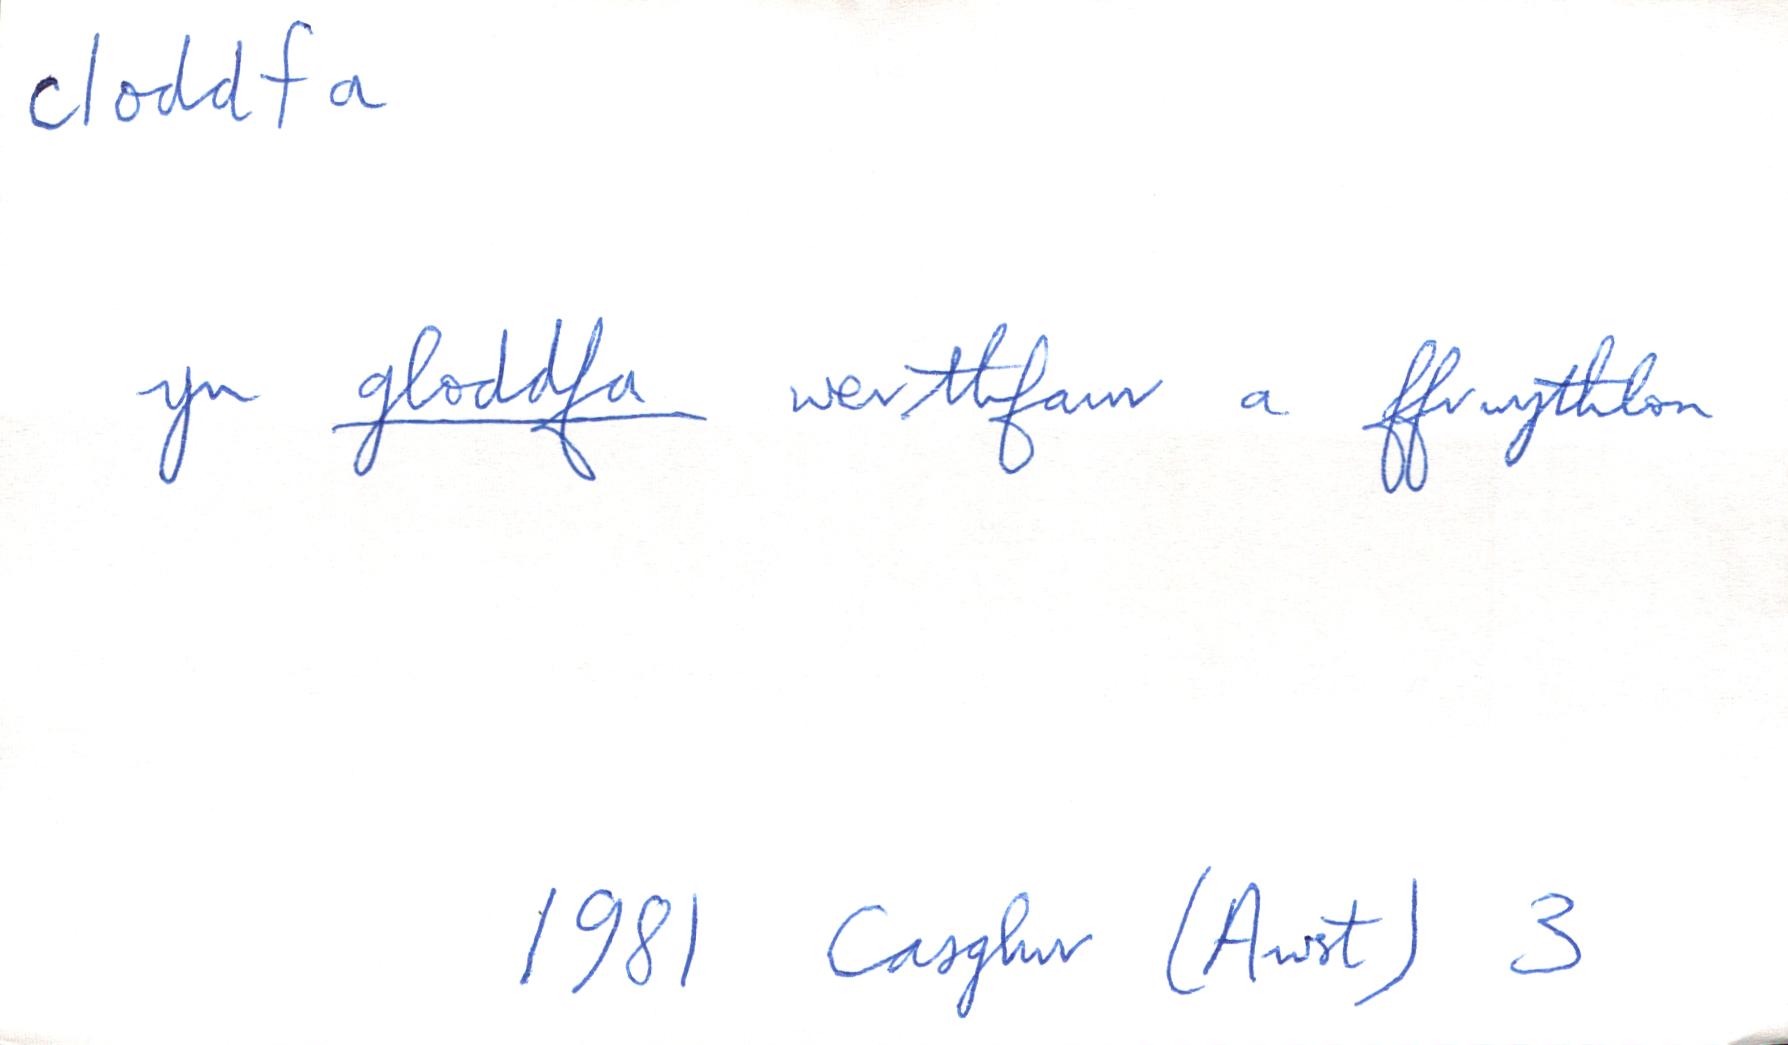 cloddfa
yn gloddfa werthfawr a ffrwythlon
1981 Casglwr (Awst) 3